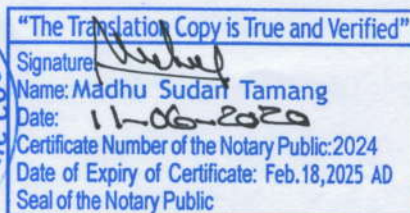 "The Translation Copy is True and Verified"
Signature:
Name: Madhu Sudan Tamang
Date: 11-06-2020
Certificate Number of the Notary Public: 2024
Date of Expiry of Certificate: Feb.18,2025 AD
Seal of the Notary Public